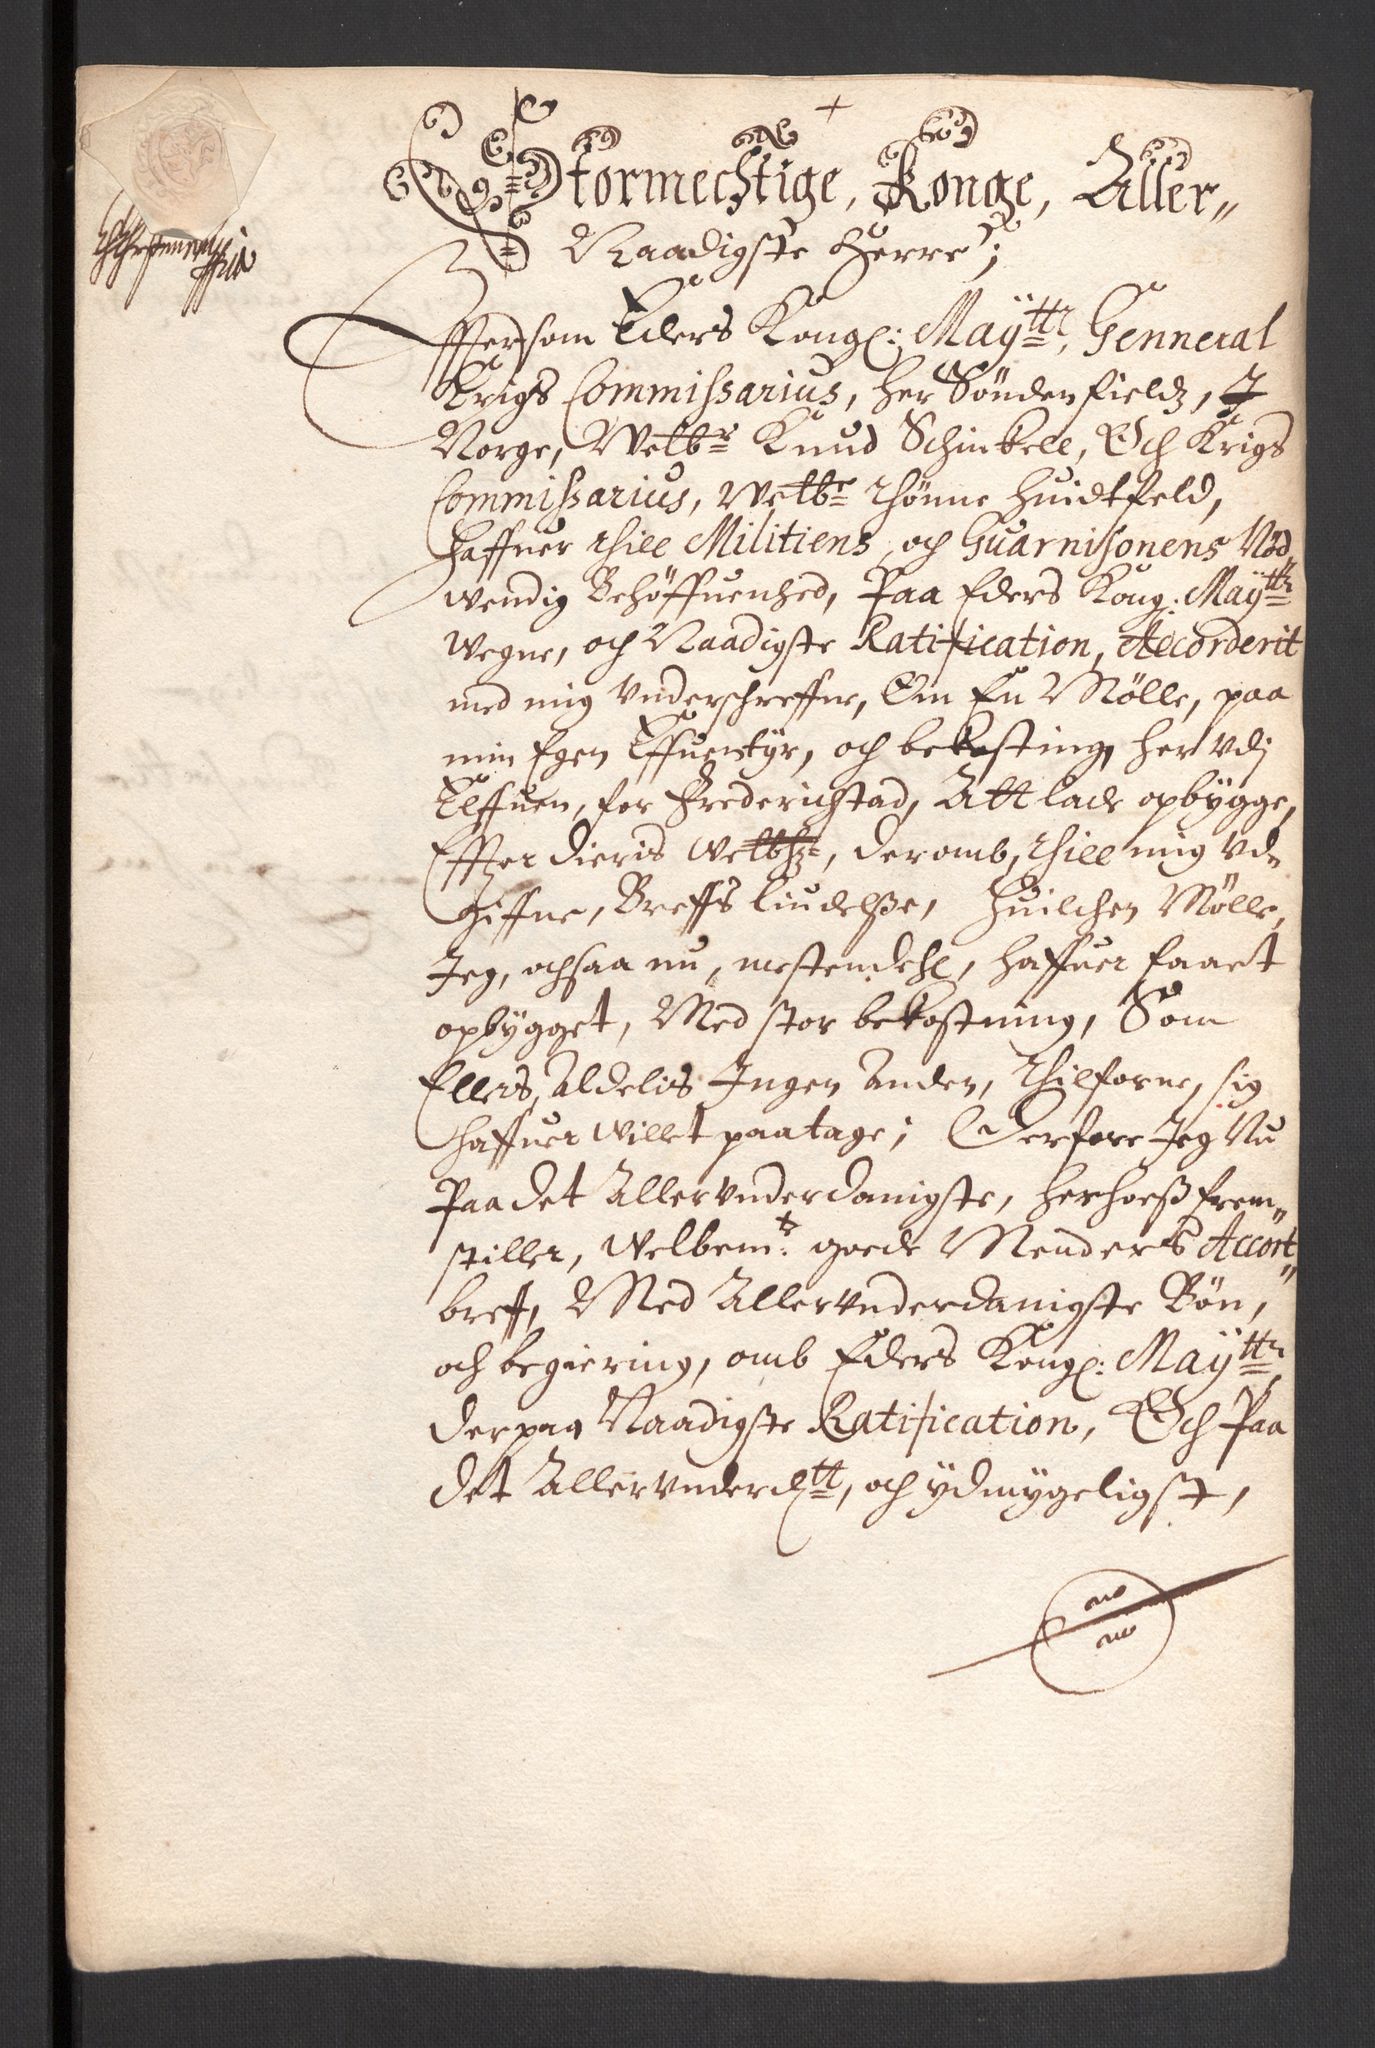 Stormechtige, Konge, Aller„
Naadigste Herre;
Effersom Eders Kongl: Maÿttz, Genneral
Krigs Commissarius, her Sønden fieldz, J
Norge, Welbr Knud Schinkell, Och Krigs
Commissarius, Welbr Thønne Huidtfeld,
haffuer thill Militiens, och Guarnisonens Nød„
wendig Behøffuenhed, Paa Eders Kong: Maÿttz
wegne, och Naadigste Ratification, Accorderit
med mig Vnderschreffne, Om En Mølle, paa
min Egen Effuentÿr, och bekosting, her vdj
Elffuen, for Frederichstad, Att lade opbÿgge,
Effter dieris Welbhz, deromb, thill mig vd„
giffne, Breffs liudelsse, Huilchen Mølle,
Jeg, ochsaa nu, mestendehl, haffuer faaet
opbÿgget, Med stor bekostning, Som
Ellers, Aldelis Ingen Anden, Thilforne, sig
haffuer willet paatage; Derfore Jeg Nu
Paa det Allervnderdanigste, herhoess frem„
stiller, welbemte: goede Menders Accort„
breff, Med Allervnderdanigste Bøn,
och begiering, omb Eders Kongl: Maÿttz,
derpaa Naadigste Ratification, Och Paa
det Allervnderdtt, och ÿdmÿgeligst,